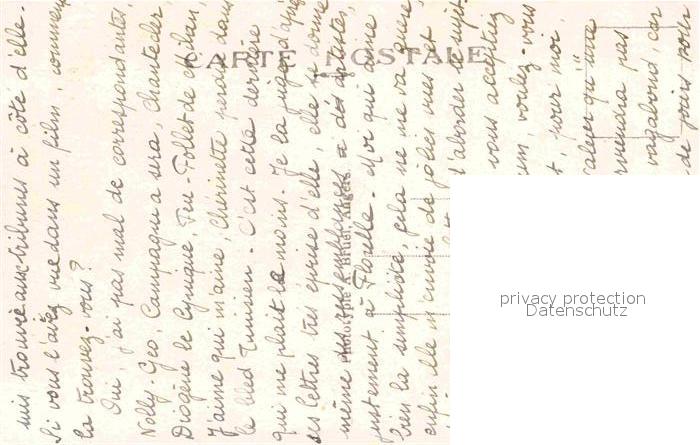 CARTE POSTALE
suis trouvée aux tribunes à côté d'elle.
Si vous l'avez vue dans un film, comment
la trouvez-vous?
Oui, j'ai pas mal de correspondantes,
Nelly-Geo, Campagna sera, Chantecler,
Diogène le Cynique, Feu-Follet de Milan,
J'aime qui m'aime, Chérinette perdue dans
le bled Tunisien. C'est cette dernière
qui me plaît le moins. Je la juge d'après
ses lettres très éprise d'elle, elle se donne
même des préférences à des artistes,
justement à Florelle. Moi qui aime
bien la simplicité, cela ne me va guère,
enfin elle m'envoie de jolies vues et
d'aborder le sujet
vous acceptiez
voulez-vous
pour moi.
qu'une
pas
vagabond, car
de vous
Angers
privacy protection
Datenschutz